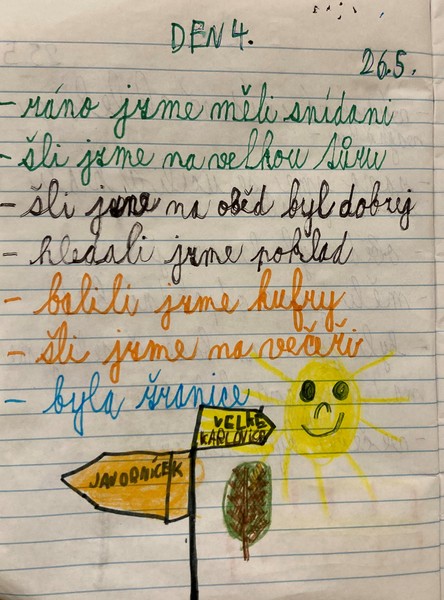 DEN 4.
26.5.
- ráno jsme měli snídani
- šli jsme na velkou túru
- šli jsme na oběd byl dobrej
- hledali jsme poklad
- balili jsme kufry
- šli jsme na večeři
- byla šranice
VELKÉ
KARLOVICE
JAVORNÍČEK